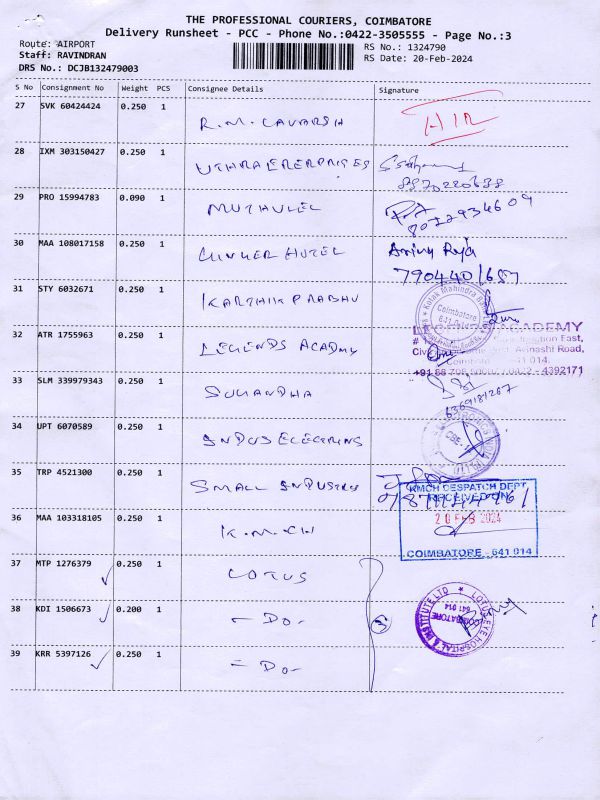 THE PROFESSIONAL COURIERS, COIMBATORE
Delivery Runsheet - PCC - Phone No.:0422-3505555 - Page No.:3
Route: AIRPORT
RS No.: 1324790
Staff: RAVINDRAN
RS Date: 20-Feb-2024
DRS No.: DCJB132479003
S No Consignment No Weight PCS Consignee Details Signature
27 SVK 60424424 0.250 1 R.M. LAVARSH AIR
28 IXM 303150427 0.250 1 UTHRA ENERPRISES
8870220638
29 PRO 15994783 0.090 1 MUTHUVEL
8072934609
30 MAA 108017158 0.250 1 HOTEL Raja
31 STY 6032671 0.250 1 KARTHIK PRABHU
Kotak Mahindra
Coimbatore
641 014
32 ATR 1755963 0.250 1 LEGENDS ACADEMY
LEGENDS ACADEMY
East,
Avinashi Road,
Coimbatore 641 014.
4392171
33 SLM 339979343 0.250 1 SUGANDHA
6369181267
34 UPT 6070589 0.250 1 INDUS
CBE
35 TRP 4521300 0.250 1 SMALL INDUSTRY
KMCH DESPATCH DEPT
RECEIVED ON
20 FEB 2024
COIMBATORE - 641 014
36 MAA 103318105 0.250 1 K.M.CH
37 MTP 1276379 0.250 1 LOTUS
38 KDI 1506673 0.200 1 - DO - 3
LOTUS EYE HOSPITAL & INSTITUTE LTD
COIMBATORE
641 014
39 KRR 5397126 0.250 1 - DO -